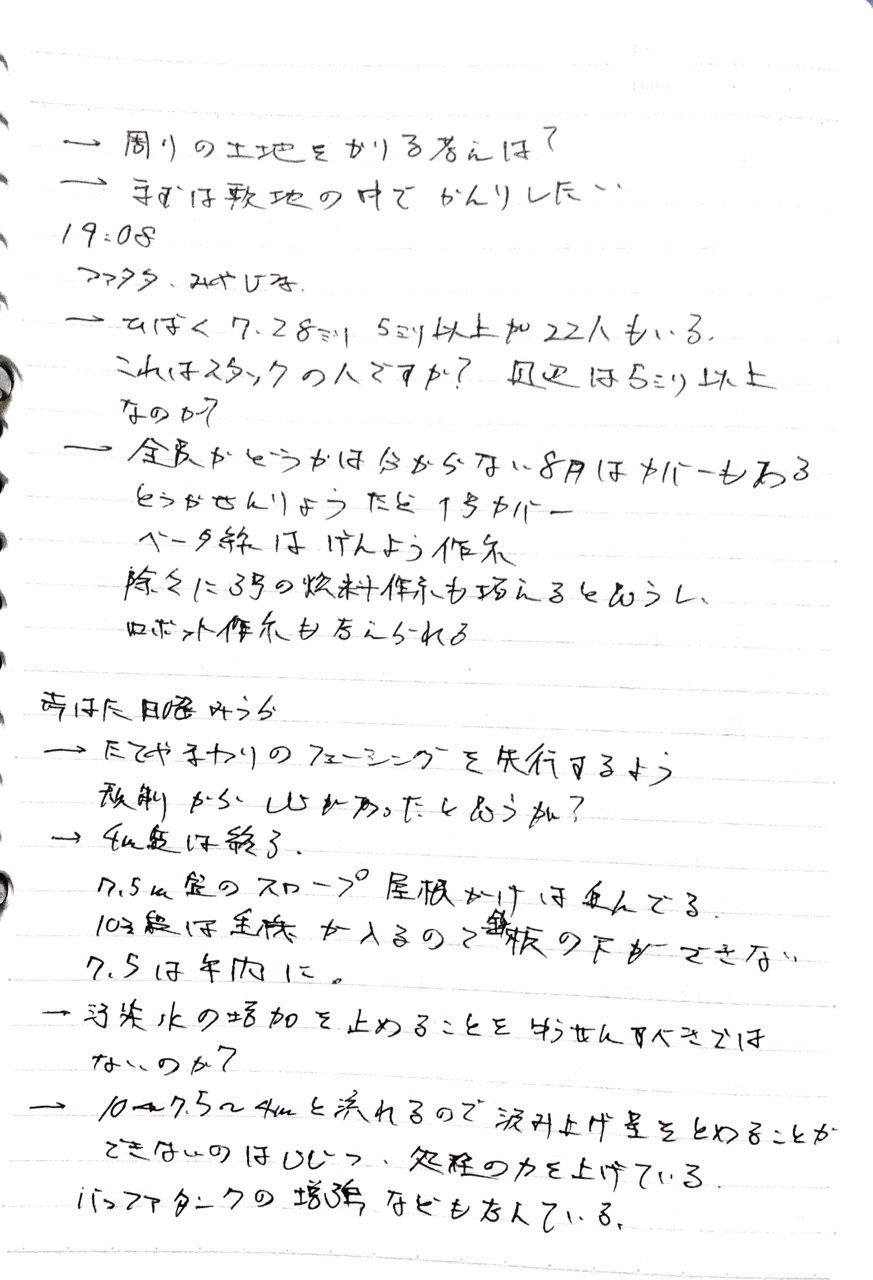 → 周りの土地をかりる考えは?
→ まずは敷地の中でかんりしたい
19:08
→ ひばく 7.28ミリ 5ミリ以上が22人もいる.
これはスタックの人ですか? 周辺は5ミリ以上
なのか?
→ 全員かどうかは分からない 8月はカバーもある
とうかせんりょうだと 1号カバー
ベータ線は げんよう作業
除々に3号の燃料作業も増えると思うし、
ロボット作業も考えられる
→ たてやまわりのフェーシングを先行するよう
規制から があったと思うが?
→ 4m盤は終る.
7.5m盤のスロープ 屋根かけは進んでる.
10m盤は重機が入るので鉄板の下ができない
7.5は年内に。
→ 汚染水の増加を止めることをゆうせんすべきでは
ないのか?
→ 10〜7.5〜4mと流れるので汲み上げ量をとめることが
できないのはじじつ、処理の力を上げている.
バッファタンクの増強なども考えている.